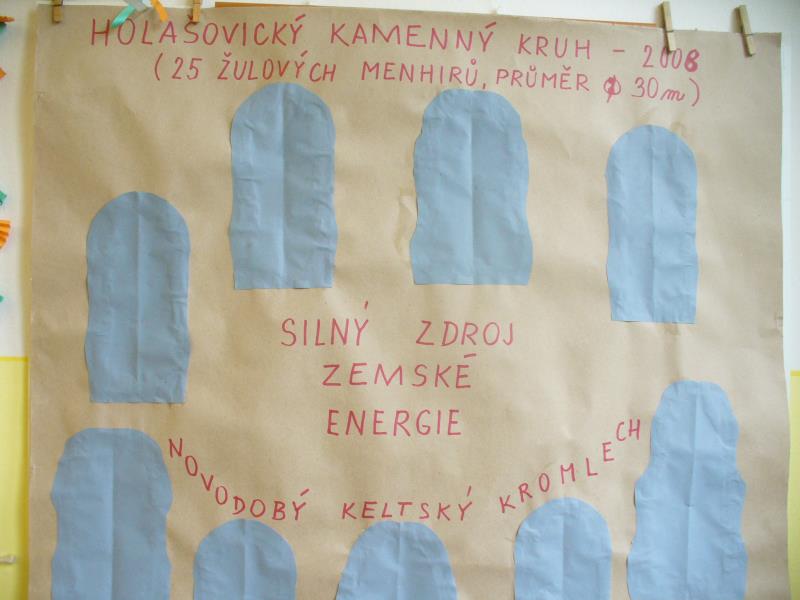 HOLAŠOVICKÝ KAMENNÝ KRUH – 2008
(25 ŽULOVÝCH MENHIRŮ, PRŮMĚR Ø 30m)
SILNÝ ZDROJ
ZEMSKÉ
ENERGIE
NOVODOBÝ KELTSKÝ KROMLECH